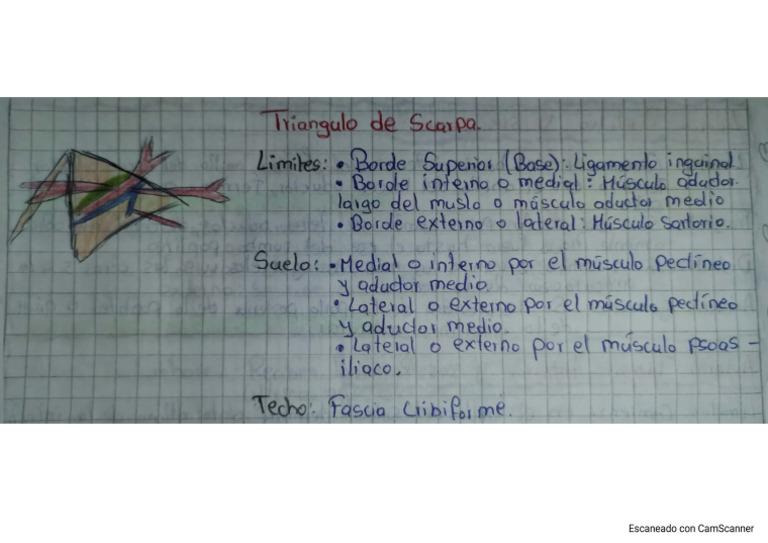 Triangulo de Scarpa.
Limites: • Borde Superior (Base): Ligamento inguinal
• Borde interno o medial: Músculo aductor
largo del muslo o músculo aductor medio
• Borde externo o lateral: Músculo Sartorio.
Suelo: • Medial o interno por el músculo pectíneo
y aductor medio.
• Lateral o externo por el músculo pectíneo
y aductor medio.
• Lateral o externo por el músculo psoas -
iliaco.
Techo: Fascia Cribiforme.
Escaneado con CamScanner